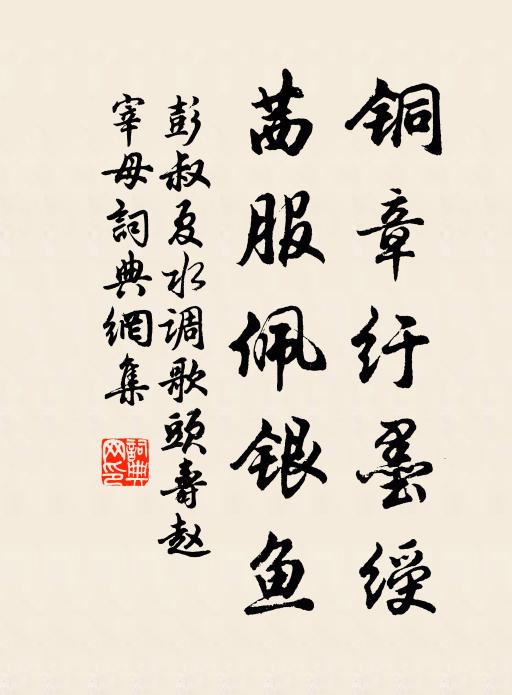 铜章纡墨绶
茜服佩银鱼
彭叔夏水调歌头寿赵
宰母詞典網集
詞典网印